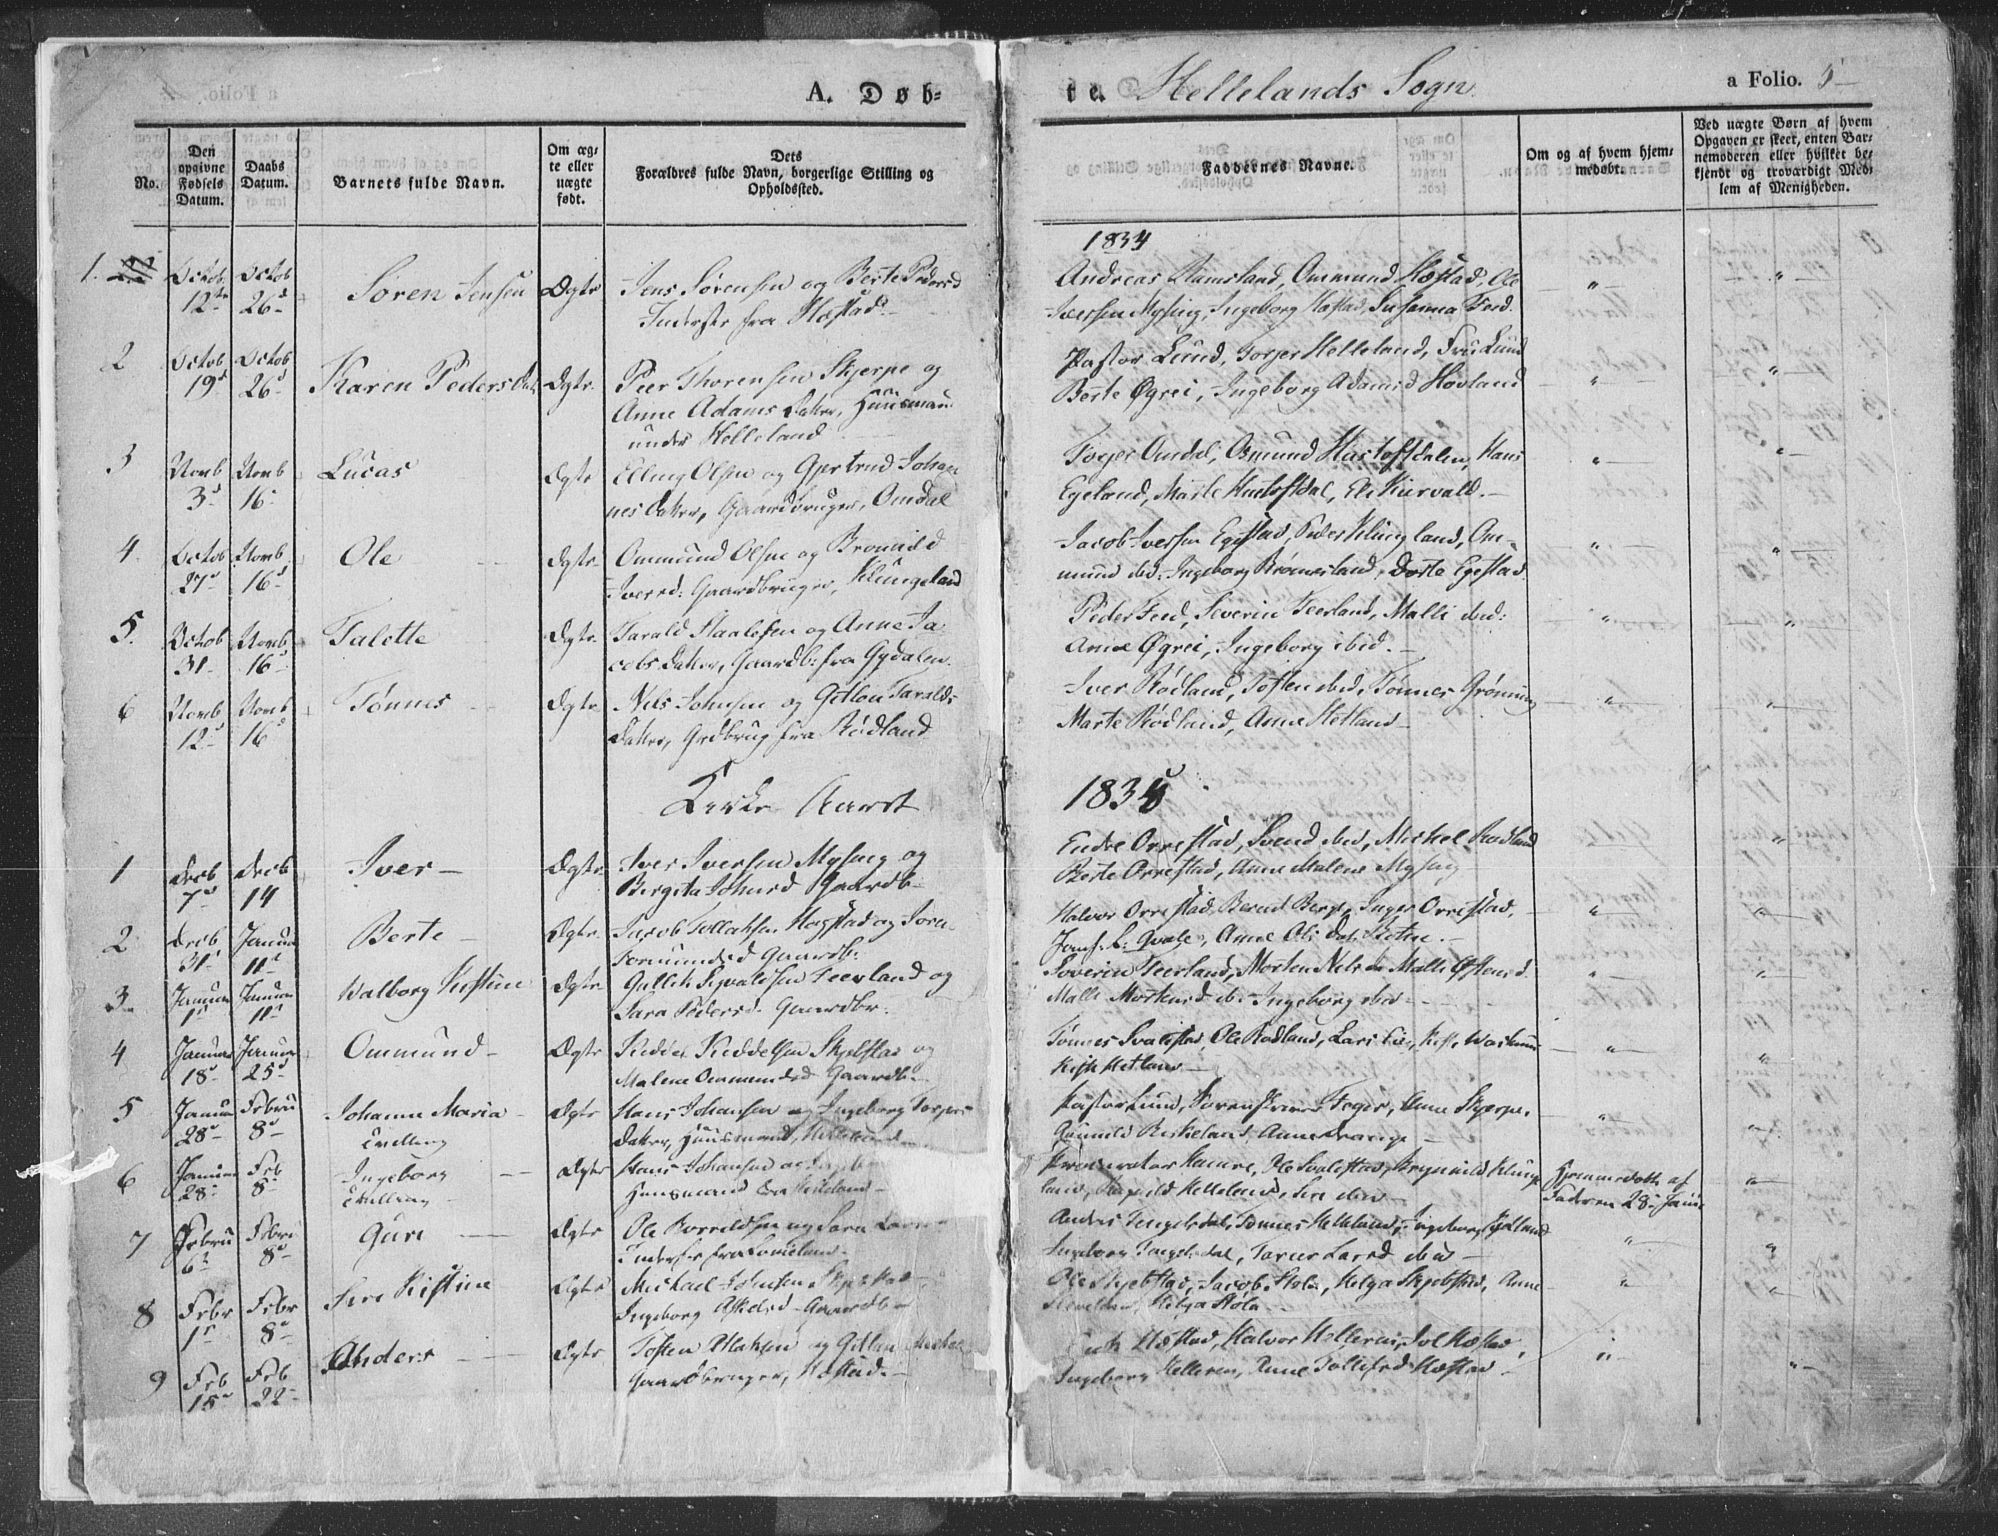 A. Døb-
te. Hellelands Sogn.
a Folio. 5
No.
Den opgivne Fødsels Datum.
Daabs Datum.
Barnets fulde Navn.
Om ægte eller uægte født.
Dets Forældres fulde Navn, borgerlige Stilling og Opholdssted.
Faddernes Navne.
Om og af hvem hjemmedøbt.
Ved uægte Børn af hvem Opgaven er skeet, enten Barnemoderen eller hvilket bekjendt og troværdigt Medlem af Menigheden.
1834
1. Octob 12te Octob 26d Søren Jensen Ægte Jens Sørensen og Berte Pedersd
Inderster fra Hæstad
Andreas Ramsland, Ommund Hæstad, Ole
Iversen Mysing, Ingeborg Hæstad, Susanna Fed.
2 Octob 19d Octob 26d Karen Peders Datr Ægte Peer Thorensen Skjerpe og
Anne Adams Datter, Huusmand
under Helleland
Pastor Lund, Torjer Helleland, Fru Lund
Berte Øgrei, Ingeborg Adamsd Hovland
3 Novb 3d Novb 16 Lucas Ægte Elling Olsen og Gjertrud Johan
nes Datter, Gaardbruger, Omdal
Torjer Omdal, Osmund Hustoftdalen, Hans
Egeland, Marte Hustoftdal, Eli Kiervald.
4. Octob 27d Novb 16d Ole Ægte Ommund Olsen og Bronild
Iversd: Gaardbruger, Klungeland
Jacob Iversen Egestad, Peder Klungland, Om-
mund ibid: Ingeborg Brømerland, Dorte Egestad
5. Octob 31 Novb 16d Talette Ægte Tarald Staalesen og Anne Ja-
cobs Datter, Gaardb: fra Gydalen
Peder Fed, Severin Teerland, Malli ibid:
Anne Øgrei, Ingeborg ibid.
6 Novb 12d Novb 16d Tønnes Ægte Nils Johnsen og Gitlou Taralds-
Datter, Grdbrug fra Rødland
Iver Rødland, Tosten ibid, Tønnes Grøning
Marte Rødland, Anne Hetland
Kirke Aaret
1835
1 Decb 7d Decb 14 Iver Ægte Iver Iversen Mysing og
Birgita Johnsd Gaardb.
Endre Orrestad, Svend ibid, Mickel Rodland
Berte Orrestad, Anne Malene Mysing
2 Decb 31 Januar 11d Berte Ægte Jacob Tollaksen Hegstad og
Gaardb:
Halvor Orrestad, Bernt Berge, Inger Orrestad,
Qvale, Anne Ols Dat.
3. Januar 1d Januar 11d Walborg Kistine Ægte Gullik Sigvaldsen Teerland og
Sara Pedersd. Gaardbr:
Severin Teerland, Morten Nels Malli Østensd.
Malli Mortensd ib. Ingeborg ibid
4 Januar 18d Januar 25d Ommund Ægte Kiddel Kiddelsen Skjelstad og
Malene Ommundsd Gaardb.
Tønnes Svalestad, Ole Rodland, Lars
Hetland
5 Januar 28d Februar 8d Johanne Maria Tvilling Ægte Hans Johansen og Ingeborg Torgers
Datter, Huusmand, Helleland
Pastor Lund, Feyer, Anne Skjerpe,
Gunnild Birkeland, Anne Drange
6 Januar 28 Feb 8 Ingeborg Tvilling Ægte Hans Johansen og Ingeb
Huusmand Helleland
Ole Svalestad, Brynnild Klunge
land, Helleland, Siri ibid
Hjemmedøbt af
Faderen 28. Janu
7 Febru 6t Febr 8d Guri Ægte Ole Torrildsen og Sara Lars
Inderster fra
Anders Tengelsdal, Tønnes Helleland, Ingeborg
Ingeborg Tengelsdal, ibid
8 Febr 1d Febr 8d Sire Kistine Ægte Michael Johnsen
Ingeborg Askelsd Gaardb
Ole Skjebstad, Jacob Stola, Helga Skjebstad, Anne
Helga Stola
9 Feb 15d Feb 22 Anders Ægte Tosten Ollaksen og Gitlau
Gaardbruger, Hæstad.
Hæstad, Halvor Helleren, Hæstad
Ingeborg Helleren, Anne Tollefsd Hæstad